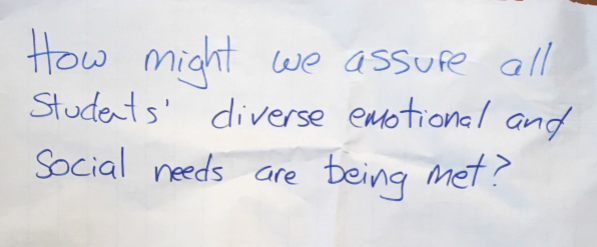 How might we assure all
Students' diverse emotional and
Social needs are being met?